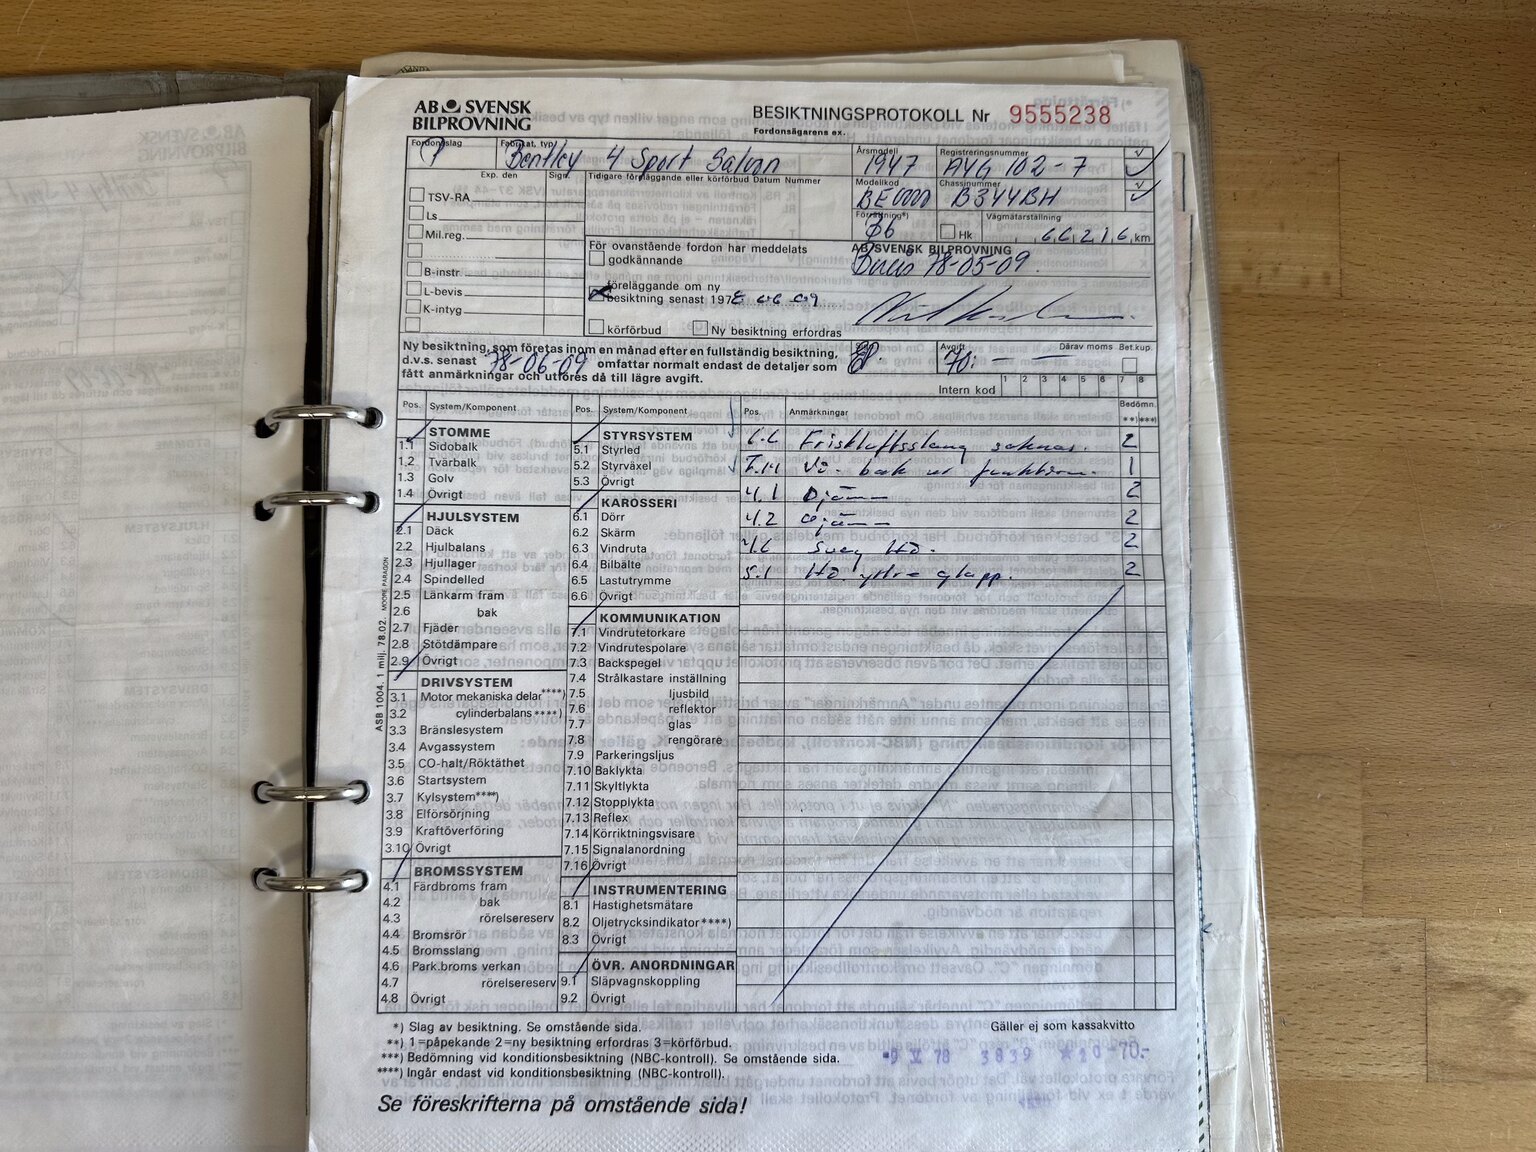 AB SVENSK
BILPROVNING
BESIKTNINGSPROTOKOLL Nr 9555238
Fordonsägarens ex.
Fordonsslag
Fabrikat, typ
Bentley 4 Sport Saloon
Årsmodell
1947
Registreringsnummer
AYG 102-7
Exp. den Sign.
Tidigare föreläggande eller körförbud Datum Nummer
Modellkod
Chassinummer
B344BH
TSV-RA
Ls
Mil.reg.
B-instr
L-bevis
K-intyg
Förrättning*)
Hk
Vägmätarställning
66216 km
För ovanstående fordon har meddelats
godkännande
AB SVENSK BILPROVNING
78-05-09
föreläggande om ny
besiktning senast 1978 06 09
körförbud
Ny besiktning erfordras
Ny besiktning, som företas inom en månad efter en fullständig besiktning,
d.v.s. senast 78-06-09 omfattar normalt endast de detaljer som
fått anmärkningar och utföres då till lägre avgift.
Avgift
70:-
Därav moms
Bet.kup.
Intern kod 1 2 3 4 5 6 7 8
Pos. System/Komponent
STOMME
1.1 Sidobalk
1.2 Tvärbalk
1.3 Golv
1.4 Övrigt
HJULSYSTEM
2.1 Däck
2.2 Hjulbalans
2.3 Hjullager
2.4 Spindelled
2.5 Länkarm fram
2.6 bak
2.7 Fjäder
2.8 Stötdämpare
2.9 Övrigt
DRIVSYSTEM
3.1 Motor mekaniska delar****)
3.2 cylinderbalans****)
3.3 Bränslesystem
3.4 Avgassystem
3.5 CO-halt/Röktäthet
3.6 Startsystem
3.7 Kylsystem****)
3.8 Elförsörjning
3.9 Kraftöverföring
3.10 Övrigt
BROMSSYSTEM
4.1 Färdbroms fram
4.2 bak
4.3 rörelsereserv
4.4 Bromsrör
4.5 Bromsslang
4.6 Park.broms verkan
4.7 rörelsereserv
4.8 Övrigt
Pos. System/Komponent
STYRSYSTEM
5.1 Styrled
5.2 Styrväxel
5.3 Övrigt
KAROSSERI
6.1 Dörr
6.2 Skärm
6.3 Vindruta
6.4 Bilbälte
6.5 Lastutrymme
6.6 Övrigt
KOMMUNIKATION
7.1 Vindrutetorkare
7.2 Vindrutespolare
7.3 Backspegel
7.4 Strålkastare inställning
7.5 ljusbild
7.6 reflektor
7.7 glas
7.8 rengörare
7.9 Parkeringsljus
7.10 Baklykta
7.11 Skyltlykta
7.12 Stopplykta
7.13 Reflex
7.14 Körriktningsvisare
7.15 Signalanordning
7.16 Övrigt
INSTRUMENTERING
8.1 Hastighetsmätare
8.2 Oljetrycksindikator****)
8.3 Övrigt
ÖVR. ANORDNINGAR
9.1 Släpvagnskoppling
9.2 Övrigt
Pos. Anmärkningar Bedömn.
**) ***)
6.6 Friskluftsslang saknas. 2
7.14 Vä. bak ur funktion. 1
4.1 Ojämn 2
4.2 Ojämn 2
4.6 Svag Hö. 2
5.1 Hö. yttre glapp. 2
ASB 1004. 1 milj. 78.02. MOORE PARAGON
*) Slag av besiktning. Se omstående sida.
**) 1=påpekande 2=ny besiktning erfordras 3=körförbud.
***) Bedömning vid konditionsbesiktning (NBC-kontroll). Se omstående sida.
****) Ingår endast vid konditionsbesiktning (NBC-kontroll).
Gäller ej som kassakvitto
-9 V 78 3839 ★20-70.-
Se föreskrifterna på omstående sida!